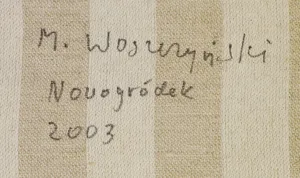 M. Woszczyński
Nowogródek
2003